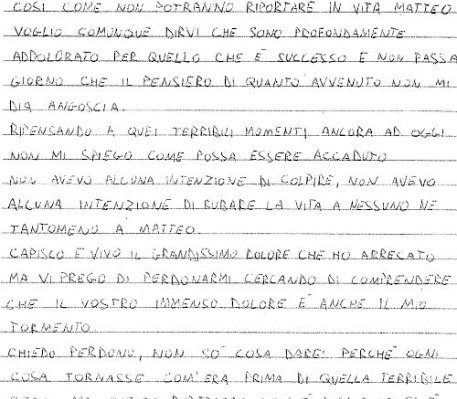 COSI COME NON POTRANNO RIPORTARE IN VITA MATTEO
VOGLIO COMUNQUE DIRVI CHE SONO PROFONDAMENTE
ADDOLORATO PER QUELLO CHE È SUCCESSO E NON PASSA
GIORNO CHE IL PENSIERO DI QUANTO AVVENUTO NON MI
DIA ANGOSCIA.
RIPENSANDO A QUEI TERRIBILI MOMENTI ANCORA AD OGGI
NON MI SPIEGO COME POSSA ESSERE ACCADUTO
NON AVEVO ALCUNA INTENZIONE DI COLPIRE, NON AVEVO
ALCUNA INTENZIONE DI RUBARE LA VITA A NESSUNO NE
TANTOMENO A MATTEO.
CAPISCO E VIVO IL GRANDISSIMO DOLORE CHE HO ARRECATO
MA VI PREGO DI PERDONARMI CERCANDO DI COMPRENDERE
CHE IL VOSTRO IMMENSO DOLORE È ANCHE IL MIO
TORMENTO.
CHIEDO PERDONO, NON SO' COSA DAREI PERCHE' OGNI
COSA TORNASSE COM'ERA PRIMA DI QUELLA TERRIBILE